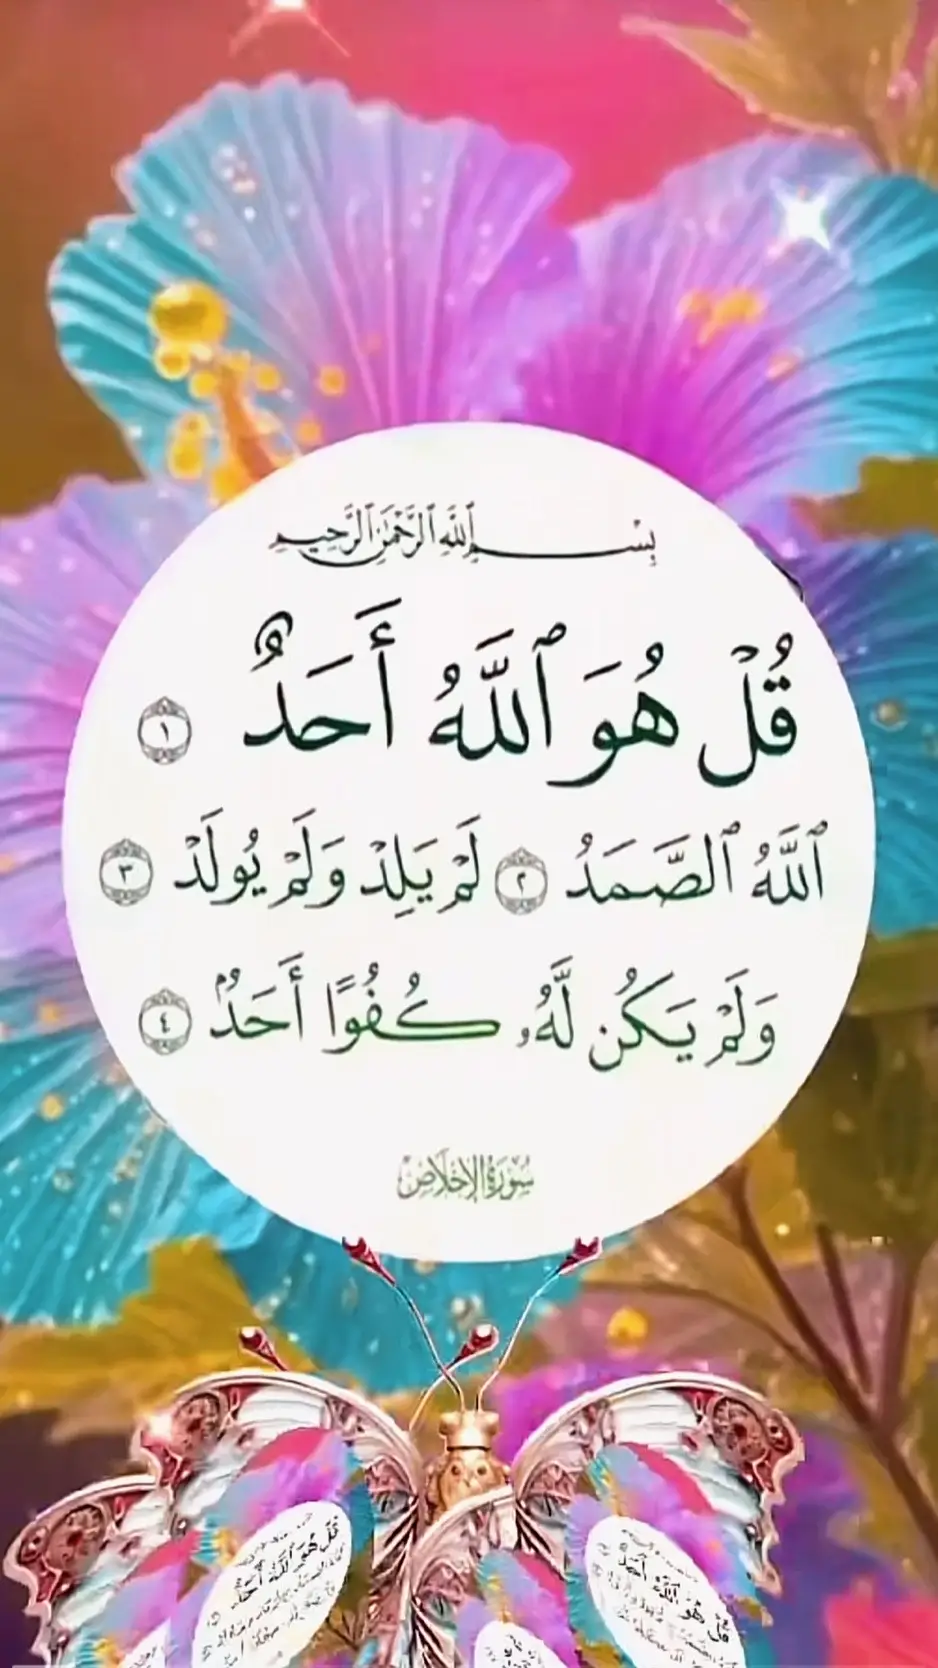 بِسْمِ ٱللَّهِ ٱلرَّحْمَٰنِ ٱلرَّحِيمِ
قُلْ هُوَ ٱللَّهُ أَحَدٌ ١
ٱللَّهُ ٱلصَّمَدُ ٢ لَمْ يَلِدْ وَلَمْ يُولَدْ ٣
وَلَمْ يَكُن لَّهُۥ كُفُوًا أَحَدٌۢ ٤
سُورَةُ الإِخْلَاصِ
قُلْ هُوَ ٱللَّهُ أَحَدٌ
قُلْ هُوَ ٱللَّهُ أَحَدٌ